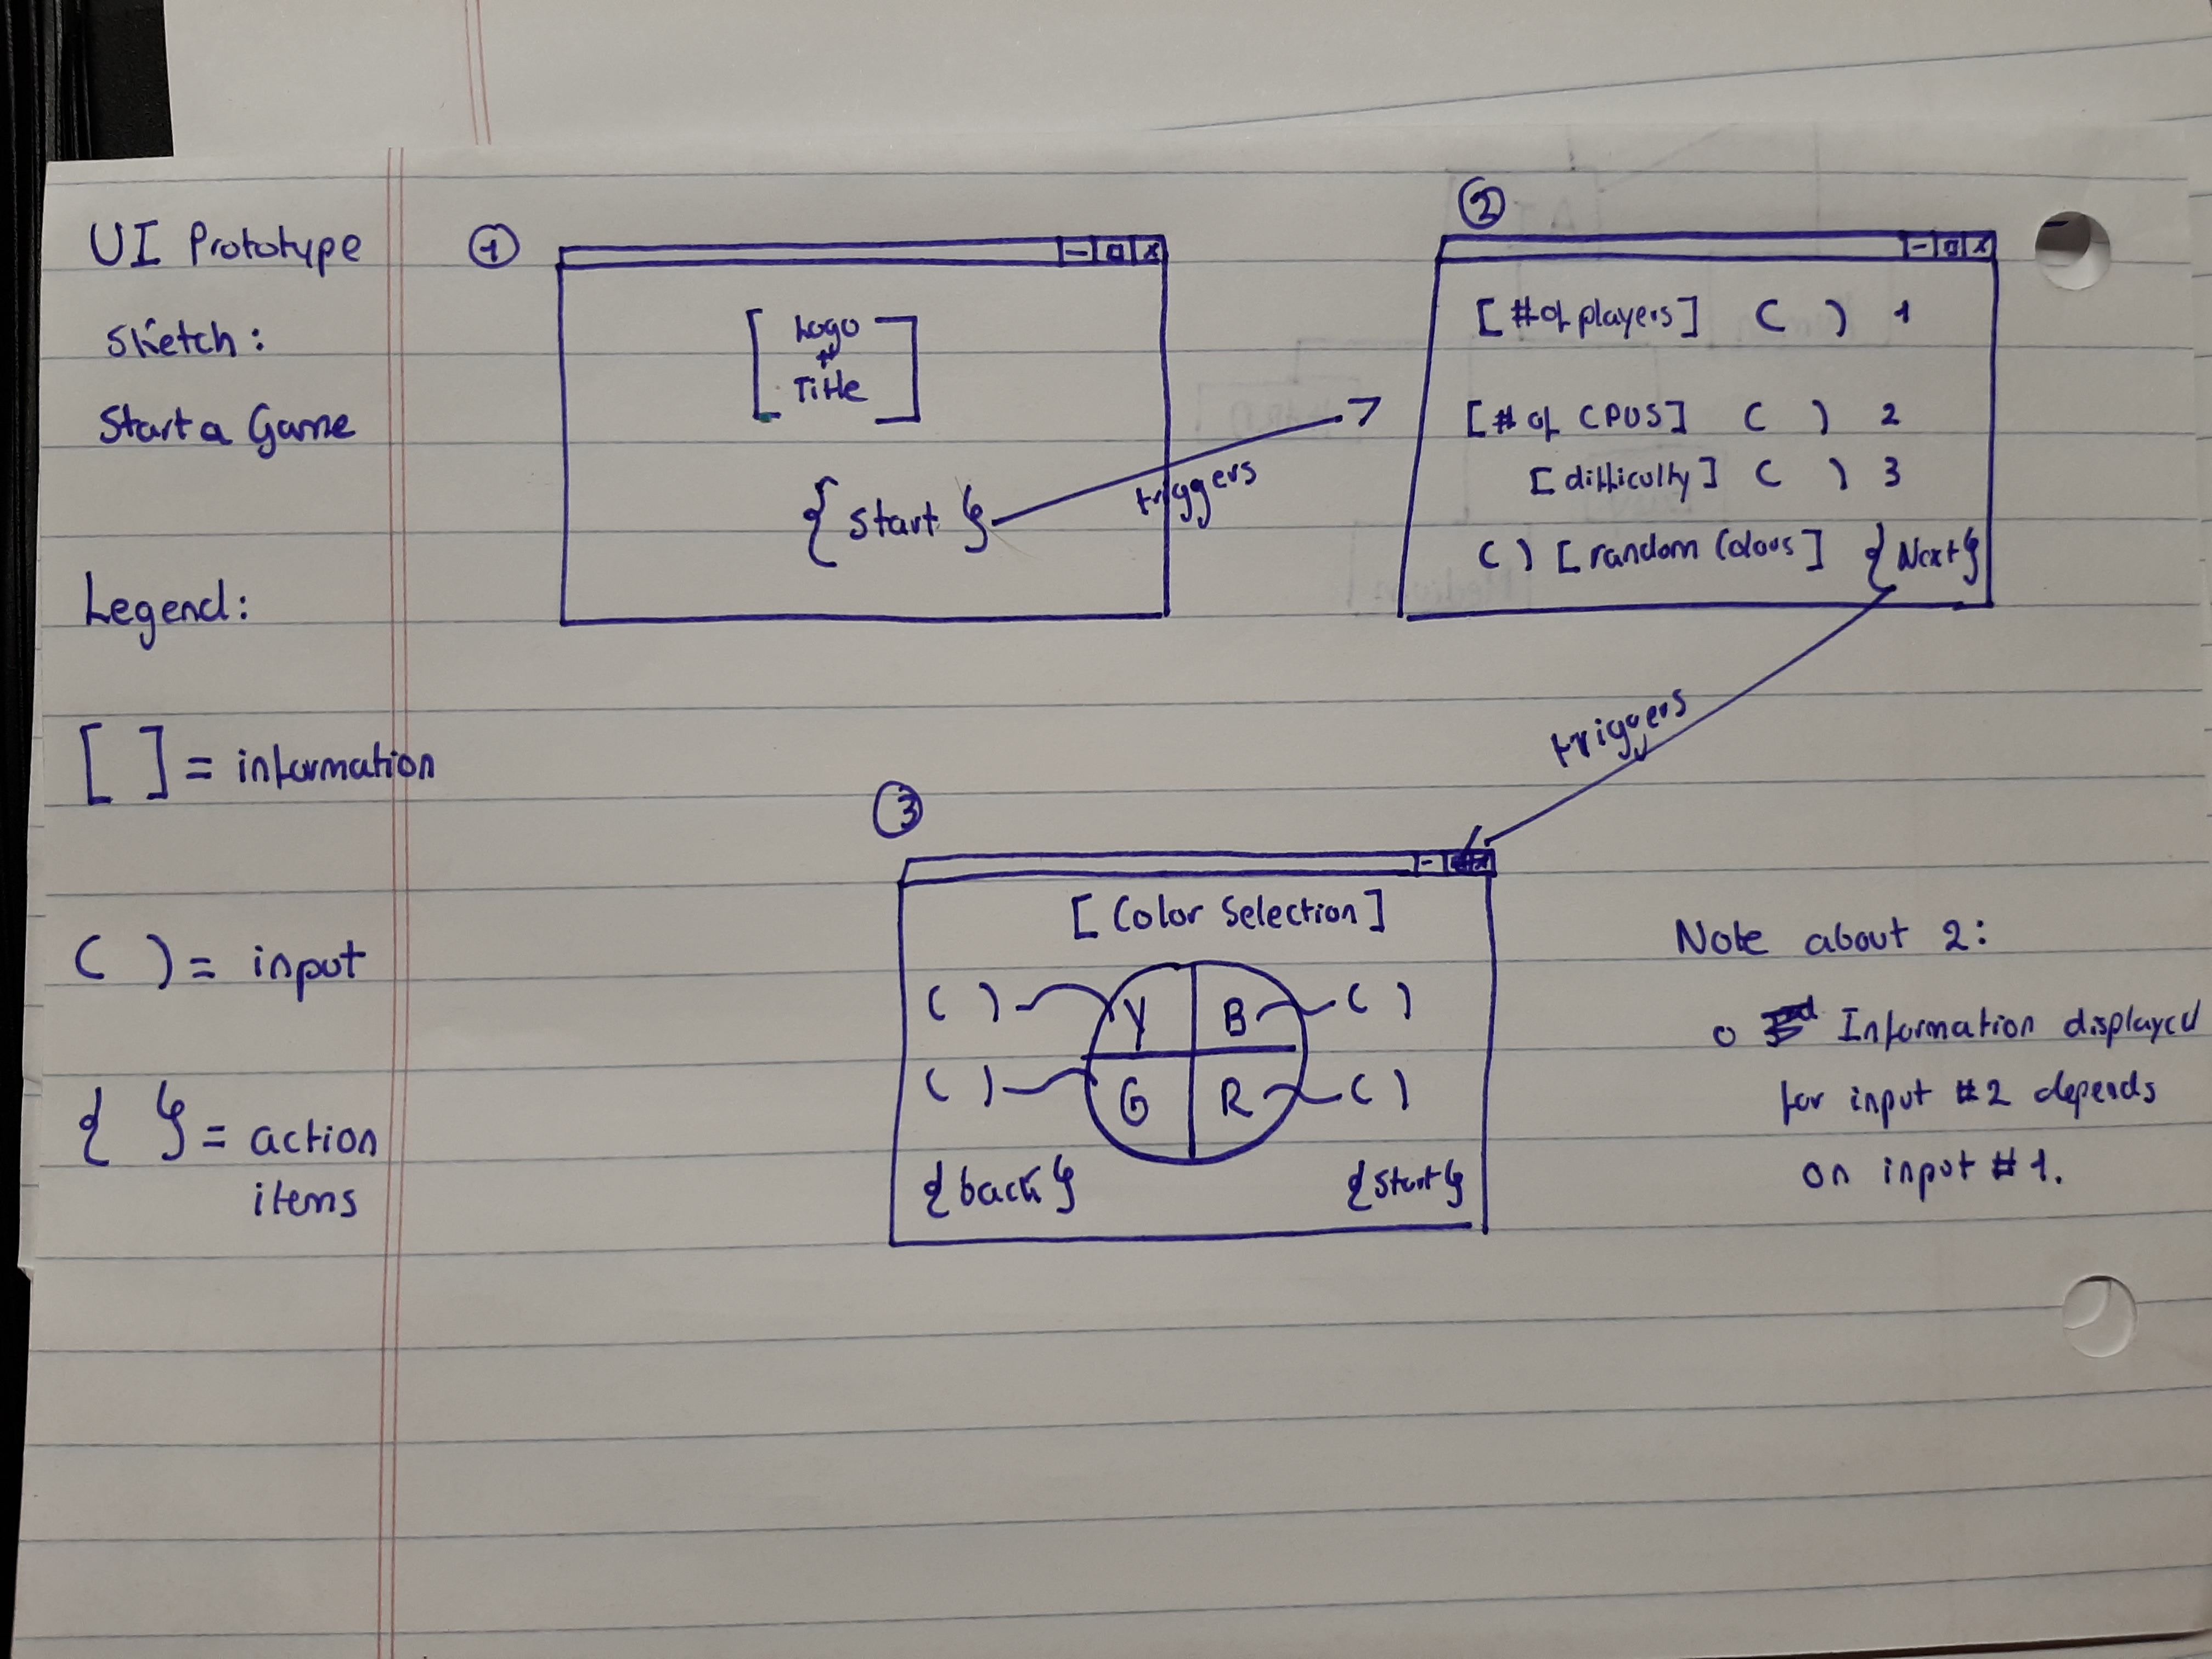 UI Prototype
sketch:
Start a Game
Legend:
[ ] = information
( ) = input
{ } = action
items
1
- □ x
[ Logo
+
Title ]
{ start }
triggers
2
- □ x
[# of players] ( ) 1
[# of CPUS] ( ) 2
[difficulty] ( ) 3
( ) [random Colors] {Next}
triggers
3
- □ x
[Color Selection]
( ) Y B ( )
( ) G R ( )
{back} {start}
Note about 2:
o Information displayed
for input #2 depends
on input #1.